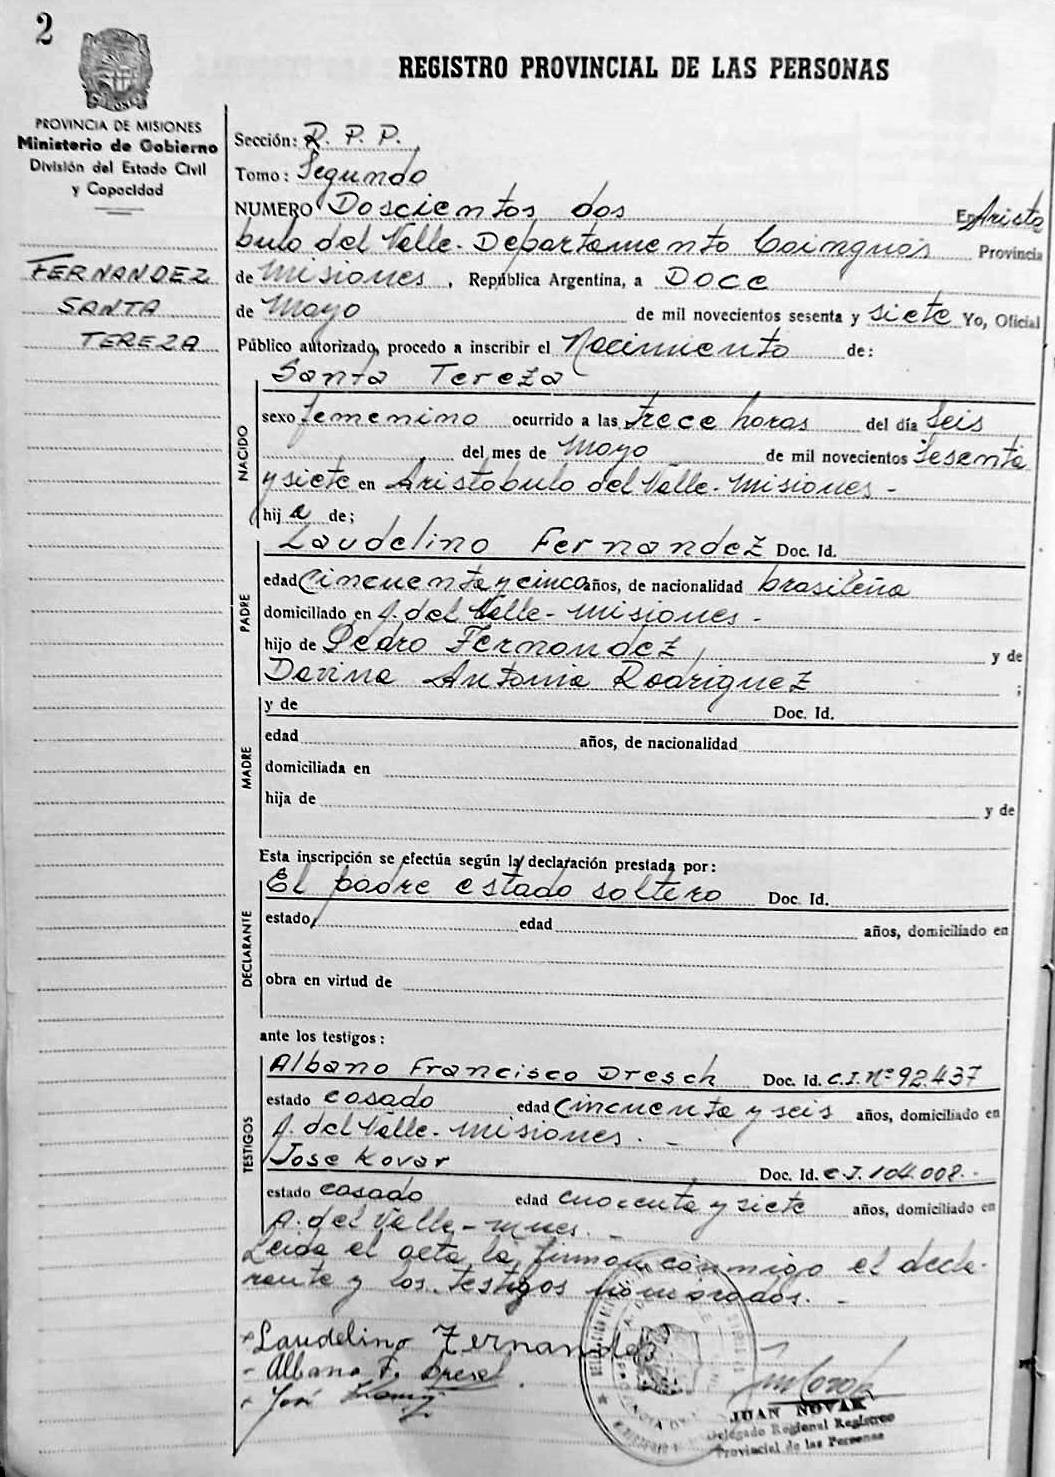 2
REGISTRO PROVINCIAL DE LAS PERSONAS
PROVINCIA DE MISIONES
Ministerio de Gobierno
División del Estado Civil
y Capacidad
FERNANDEZ
SANTA
TEREZA
Sección: R. P. P.
Tomo: Segundo
NUMERO Doscientos dos En Aristo
bulo del Valle - Departamento Cainguás Provincia
de Misiones, República Argentina, a DOCE
de Mayo de mil novecientos sesenta y siete Yo, Oficial
Público autorizado, procedo a inscribir el Nacimiento de:
NACIDO
Santa Tereza
sexo femenino ocurrido a las trece horas del día Seis
del mes de Mayo de mil novecientos Sesenta
y siete en Aristobulo del Valle - Misiones -
hij a de;
PADRE
Laudelino Fernandez Doc. Id.
edad Cincuenta y cinco años, de nacionalidad brasileña
domiciliado en A. del Valle - Misiones -
hijo de Pedro Fernandez, y de
Davina Antonia Rodriguez ;
MADRE
y de Doc. Id.
edad años, de nacionalidad
domiciliada en
hija de y de
Esta inscripción se efectúa según la declaración prestada por:
DECLARANTE
El padre estado soltero Doc. Id.
estado, edad años, domiciliado en
obra en virtud de
ante los testigos:
TESTIGOS
Albano Francisco Dresch Doc. Id. C.I. Nº 92.437
estado casado edad Cincuenta y seis años, domiciliado en
A. del Valle - Misiones. -
Jose Kovar Doc. Id. C.I. 104.008.-
estado casado edad cuarenta y siete años, domiciliado en
A. del Valle - Mnes. -
Leida el acta la firman conmigo el decla-
rante y los testigos nombrados. -
Laudelino Fernandes
- Albano F. Dresch
José
JUAN NOVAK
Delegado Regional Registro
Provincial de las Personas